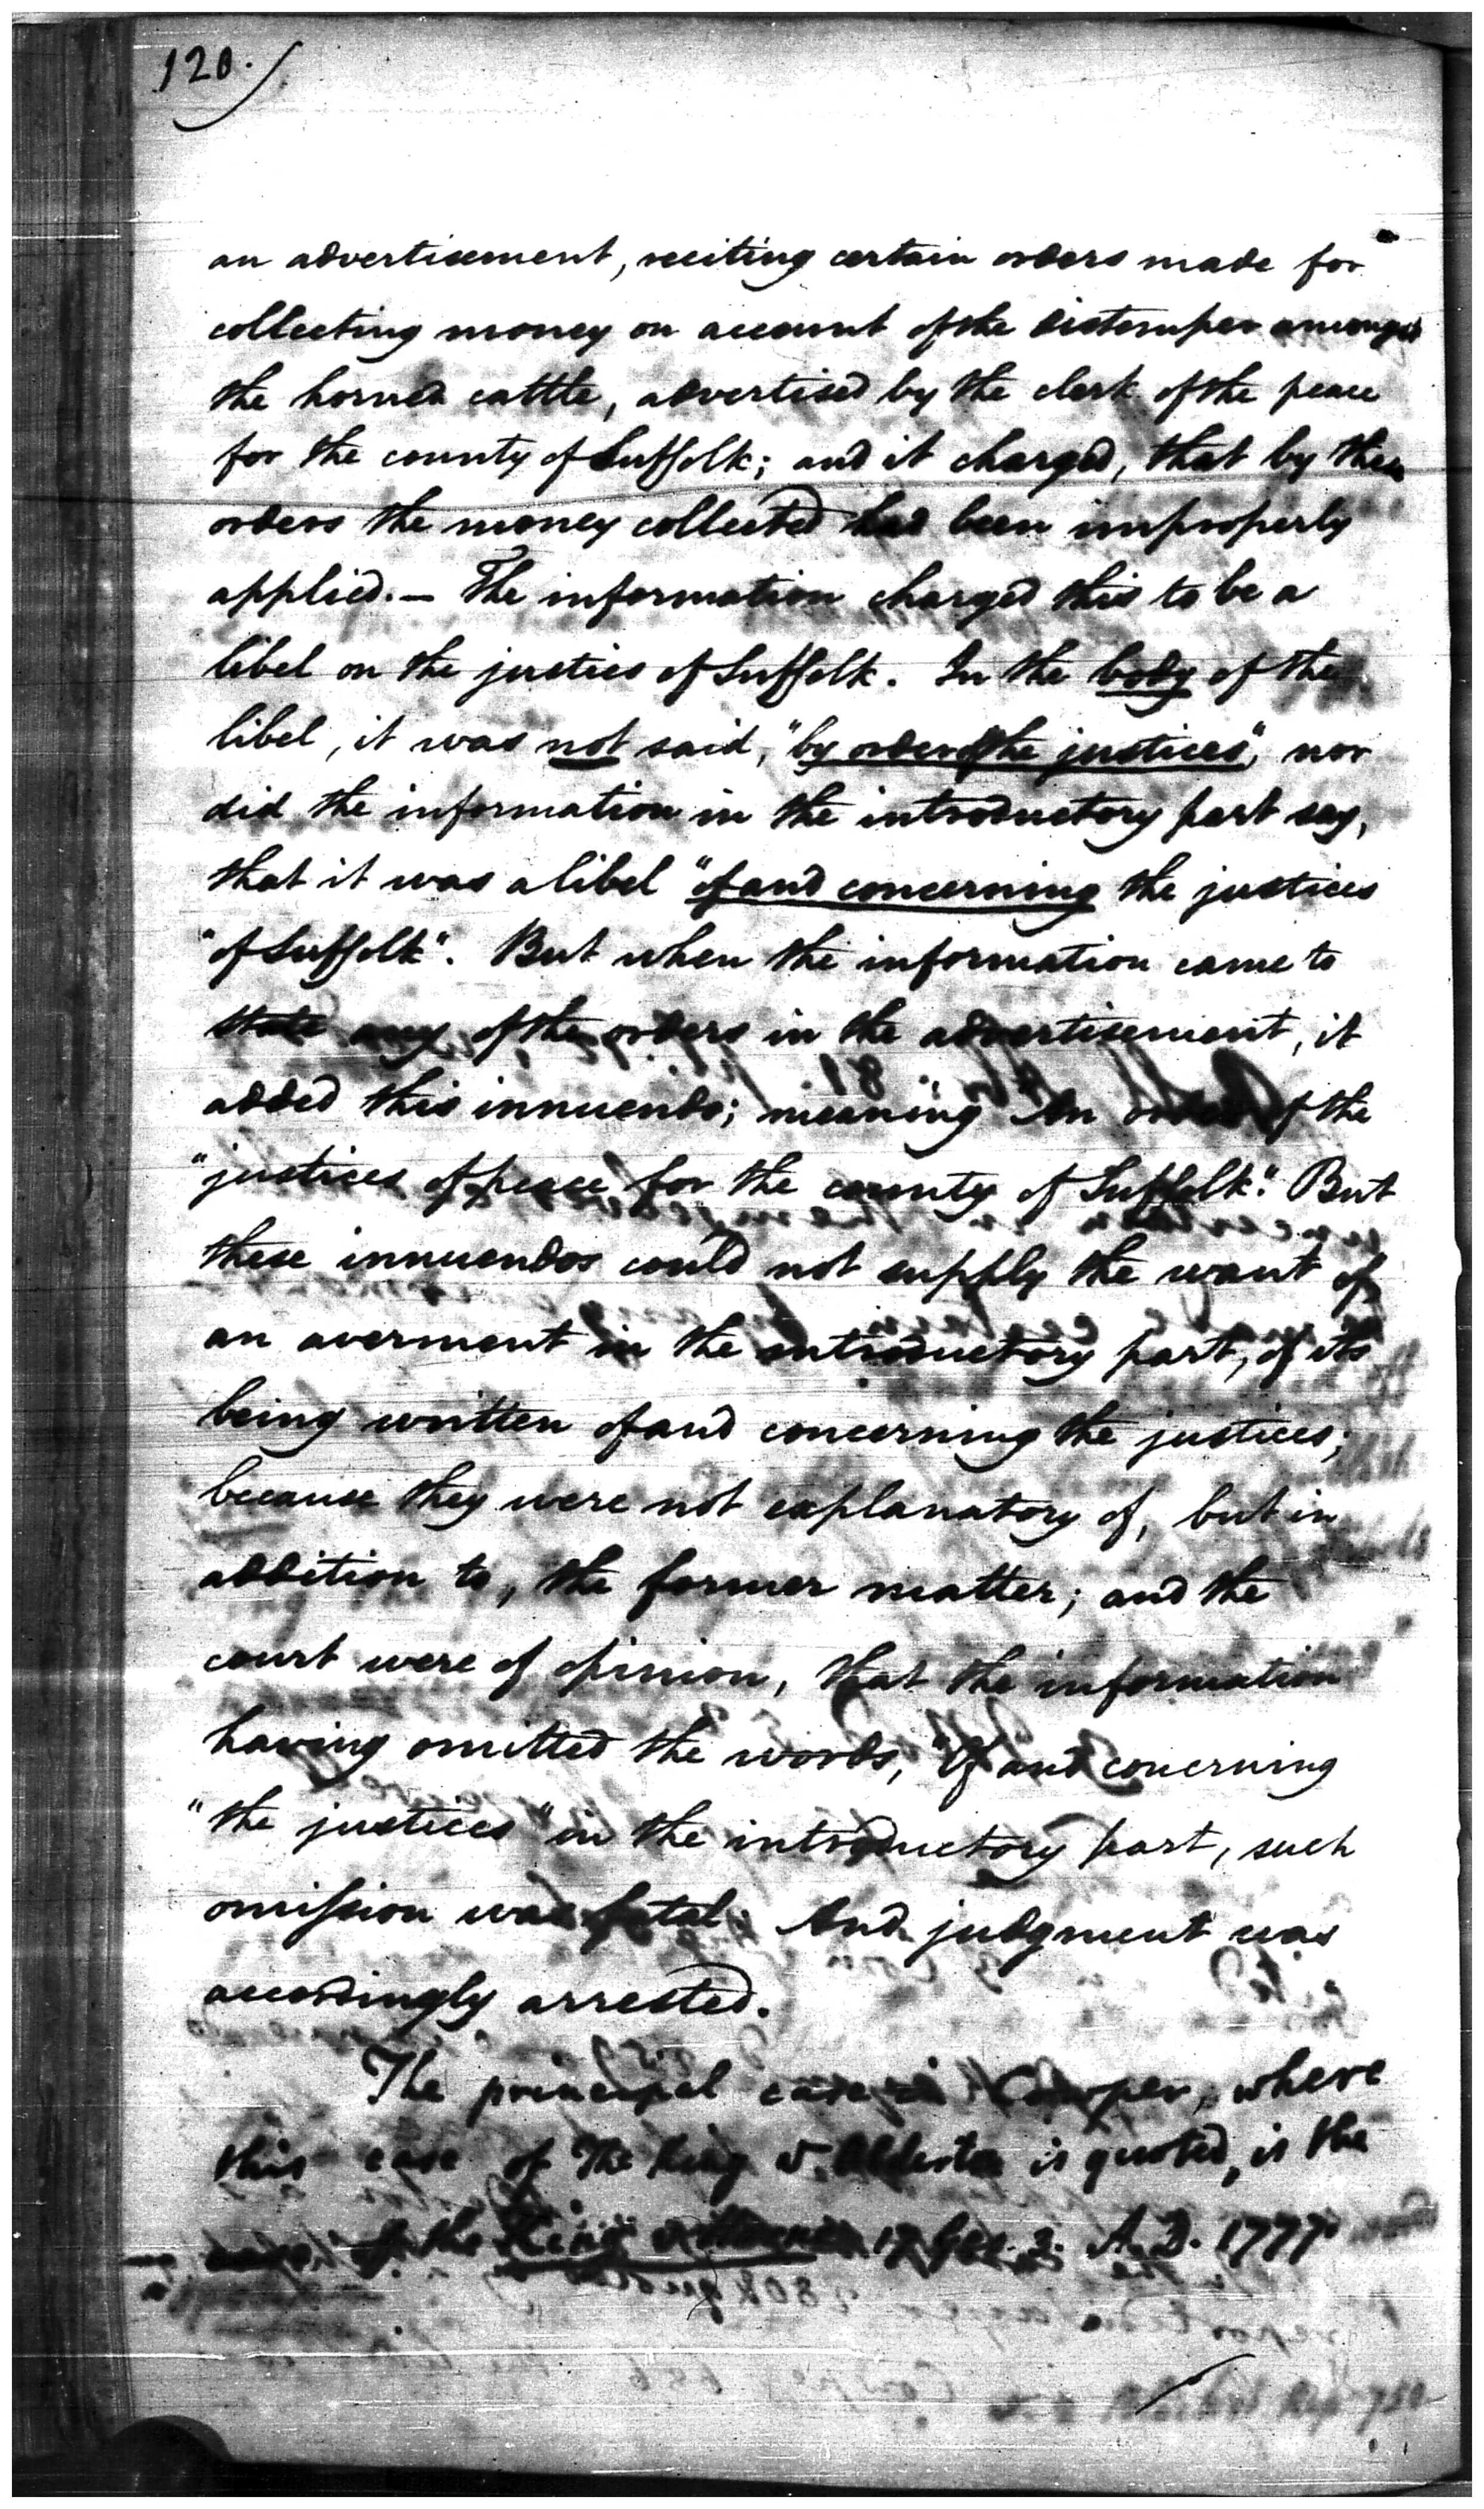 120.
an advertisement, reciting certain orders made for
collecting money on account of the distemper amongst
the horned cattle, advertised by the clerk of the peace
for the county of Suffolk; and it charged, that by these
orders the money collected had been improperly
applied. — The information charged this to be a
libel on the justices of Suffolk. In the body of the
libel, it was not said, "by order of the justices", nor
did the information in the introductory part say,
that it was a libel "of and concerning the justices
"of Suffolk". But when the information came to
state any of the orders in the advertisement, it
added this innuendo; meaning "An order of the
"justices of peace for the county of Suffolk". But
these innuendos could not supply the want of
an averment in the introductory part, of its
being written of and concerning the justices;
because they were not explanatory of, but in
addition to, the former matter; and the
court were of opinion, that the information
having omitted the words, "Of and concerning
"the justices" in the introductory part, such
omission was fatal; And judgment was
accordingly arrested.
The principal case in Cowper, where
this case of The King v. Alderton is quoted, is the
case of the King v. Horne 17. Geo. 3. A.D. 1777